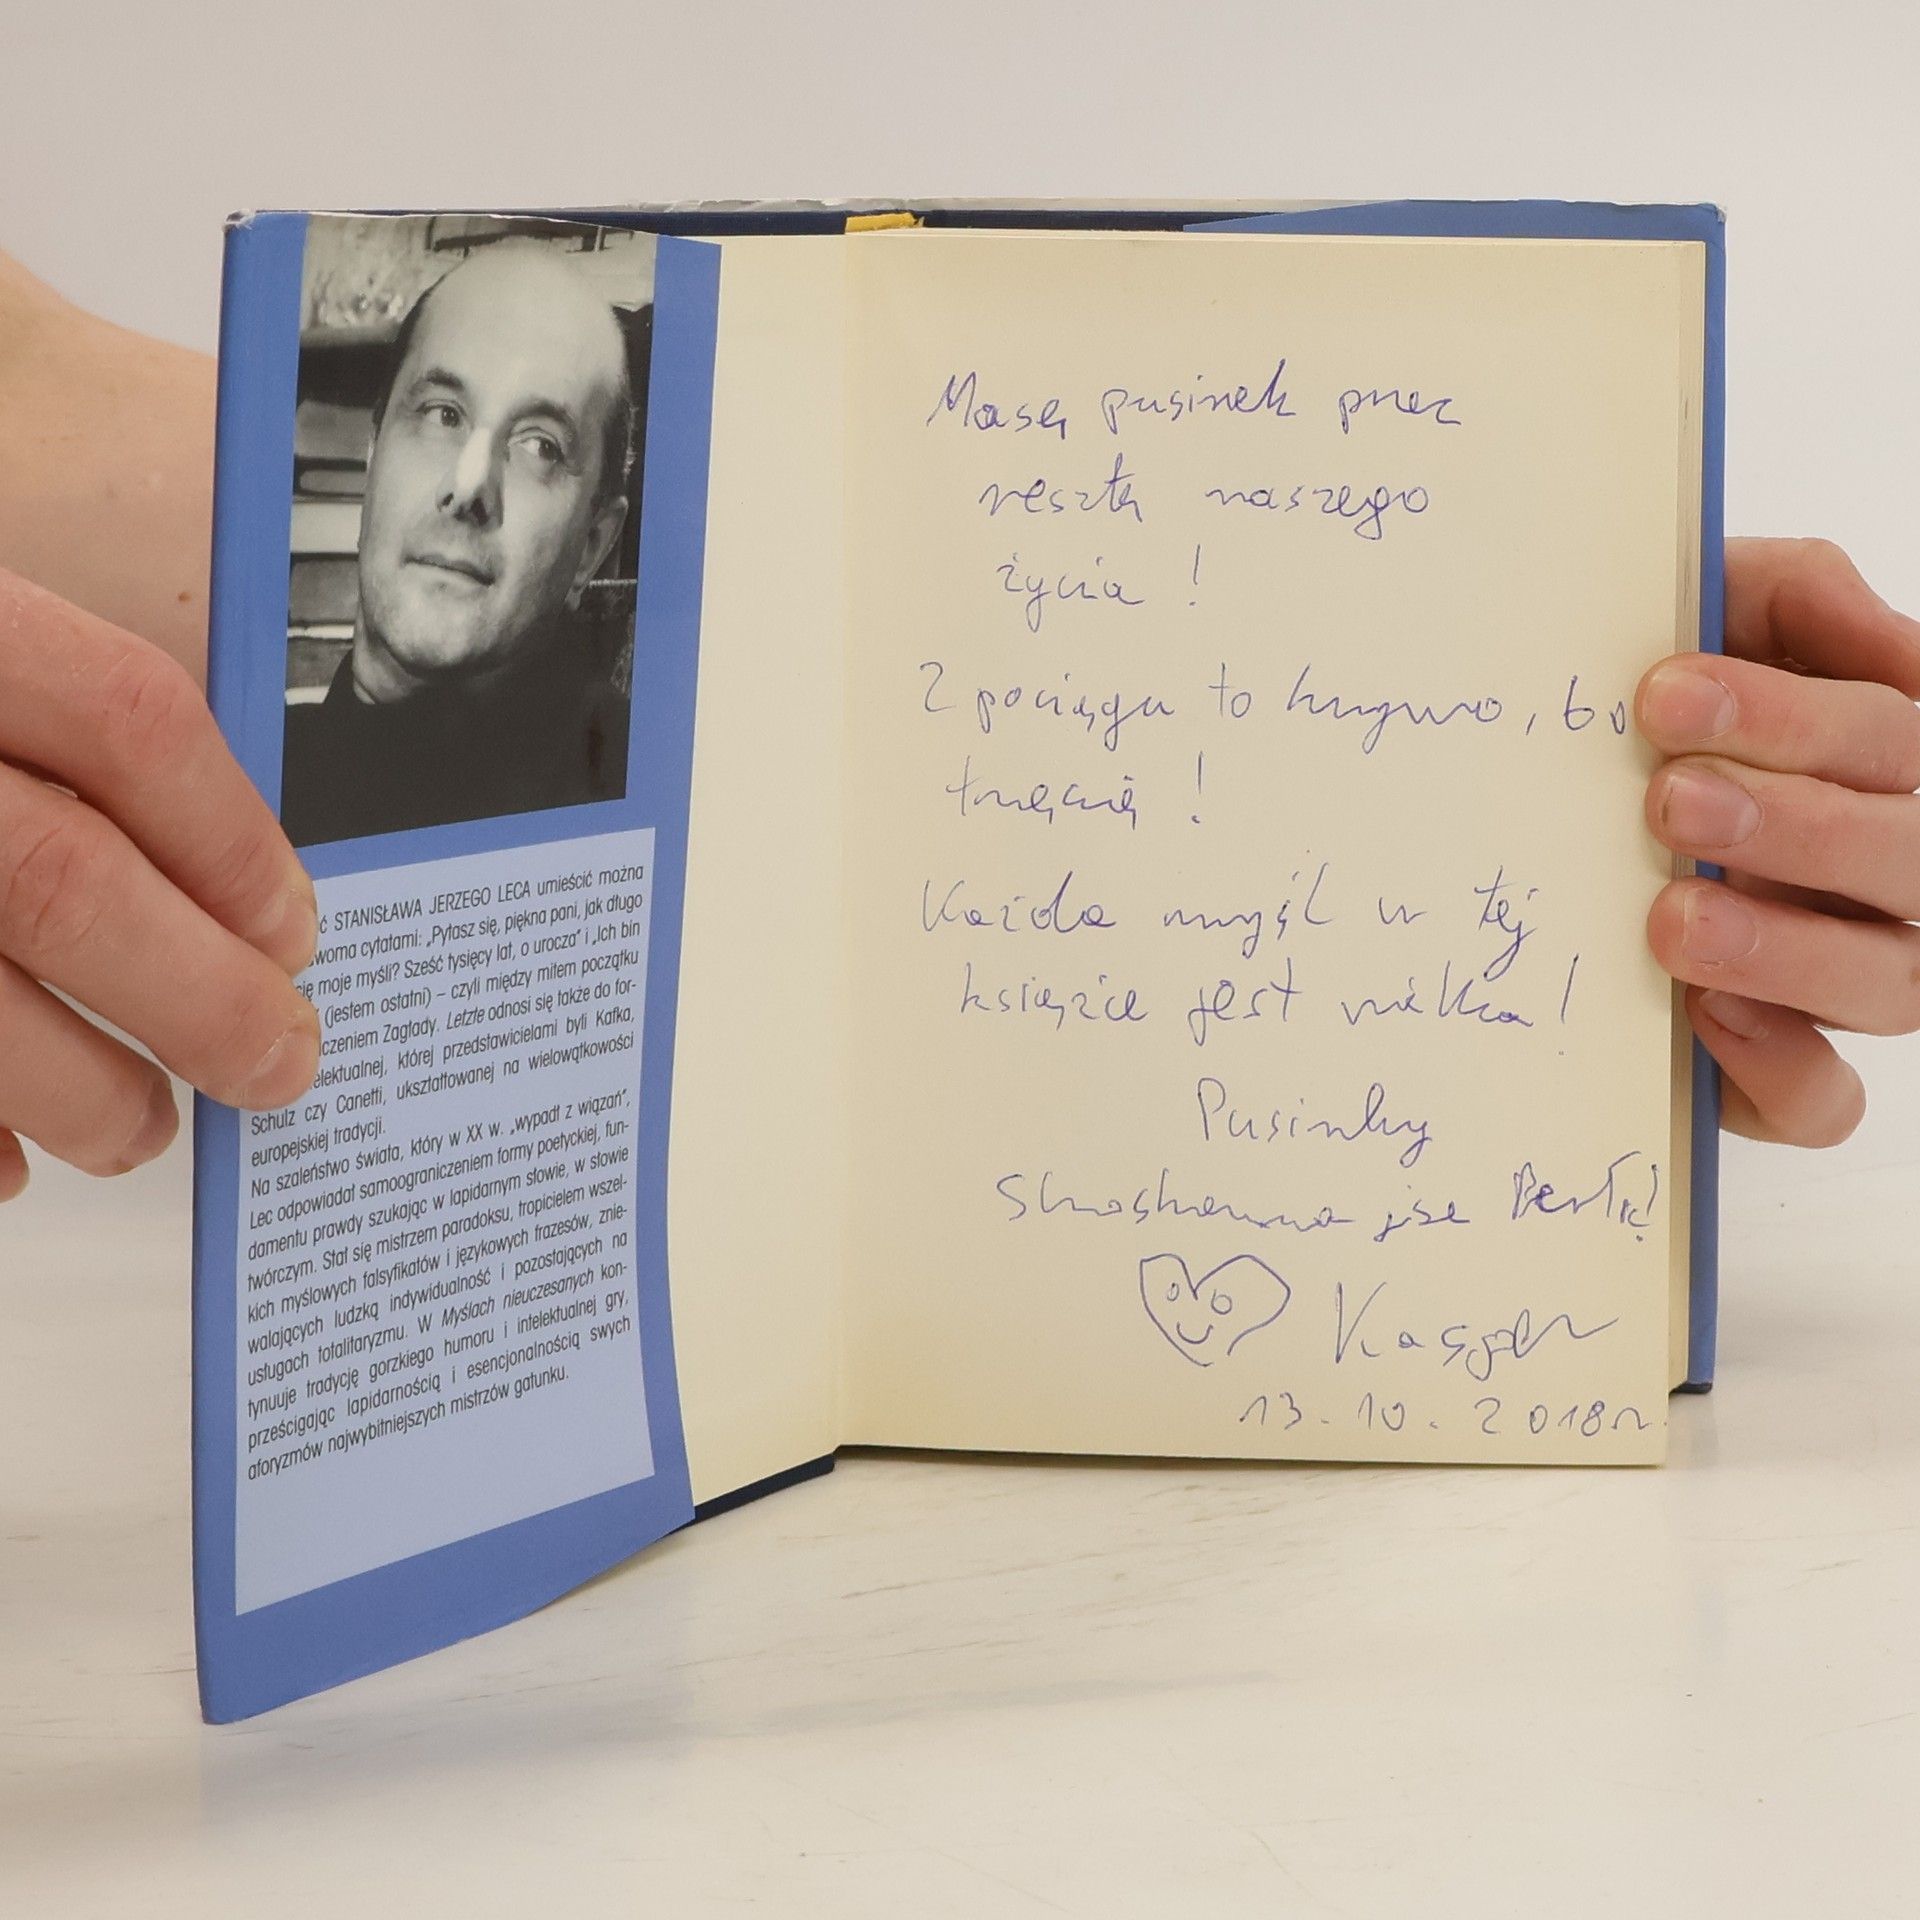 ć STANISŁAWA JERZEGO LECA umieścić można
woma cytatami: „Pytasz się, piękna pani, jak długo
ię moje myśli? Sześć tysięcy lat, o urocza” i „Ich bin
(jestem ostatni) – czyli między mitem początku
czeniem Zagłady. Letzte odnosi się także do for-
elektualnej, której przedstawicielami byli Kafka,
Schulz czy Canetti, ukształtowanej na wielowątkowości
europejskiej tradycji.
Na szaleństwo świata, który w XX w. „wypadł z wiązań”,
Lec odpowiadał samoograniczeniem formy poetyckiej, fun-
damentu prawdy szukając w lapidarnym słowie, w słowie
twórczym. Stał się mistrzem paradoksu, tropicielem wszel-
kich myślowych falsyfikatów i językowych frazesów, znie-
walających ludzką indywidualność i pozostających na
usługach totalitaryzmu. W Myślach nieuczesanych kon-
tynuuje tradycję gorzkiego humoru i intelektualnej gry,
prześcigając lapidarnością i esencjonalnością swych
aforyzmów najwybitniejszych mistrzów gatunku.
Masę pusinek przez
resztę naszego
życia!
Z pociągu to krzywo, bo
trzęsie!
Każda myśl w tej
książce jest wielka!
Pusinky
13.10.2018r.